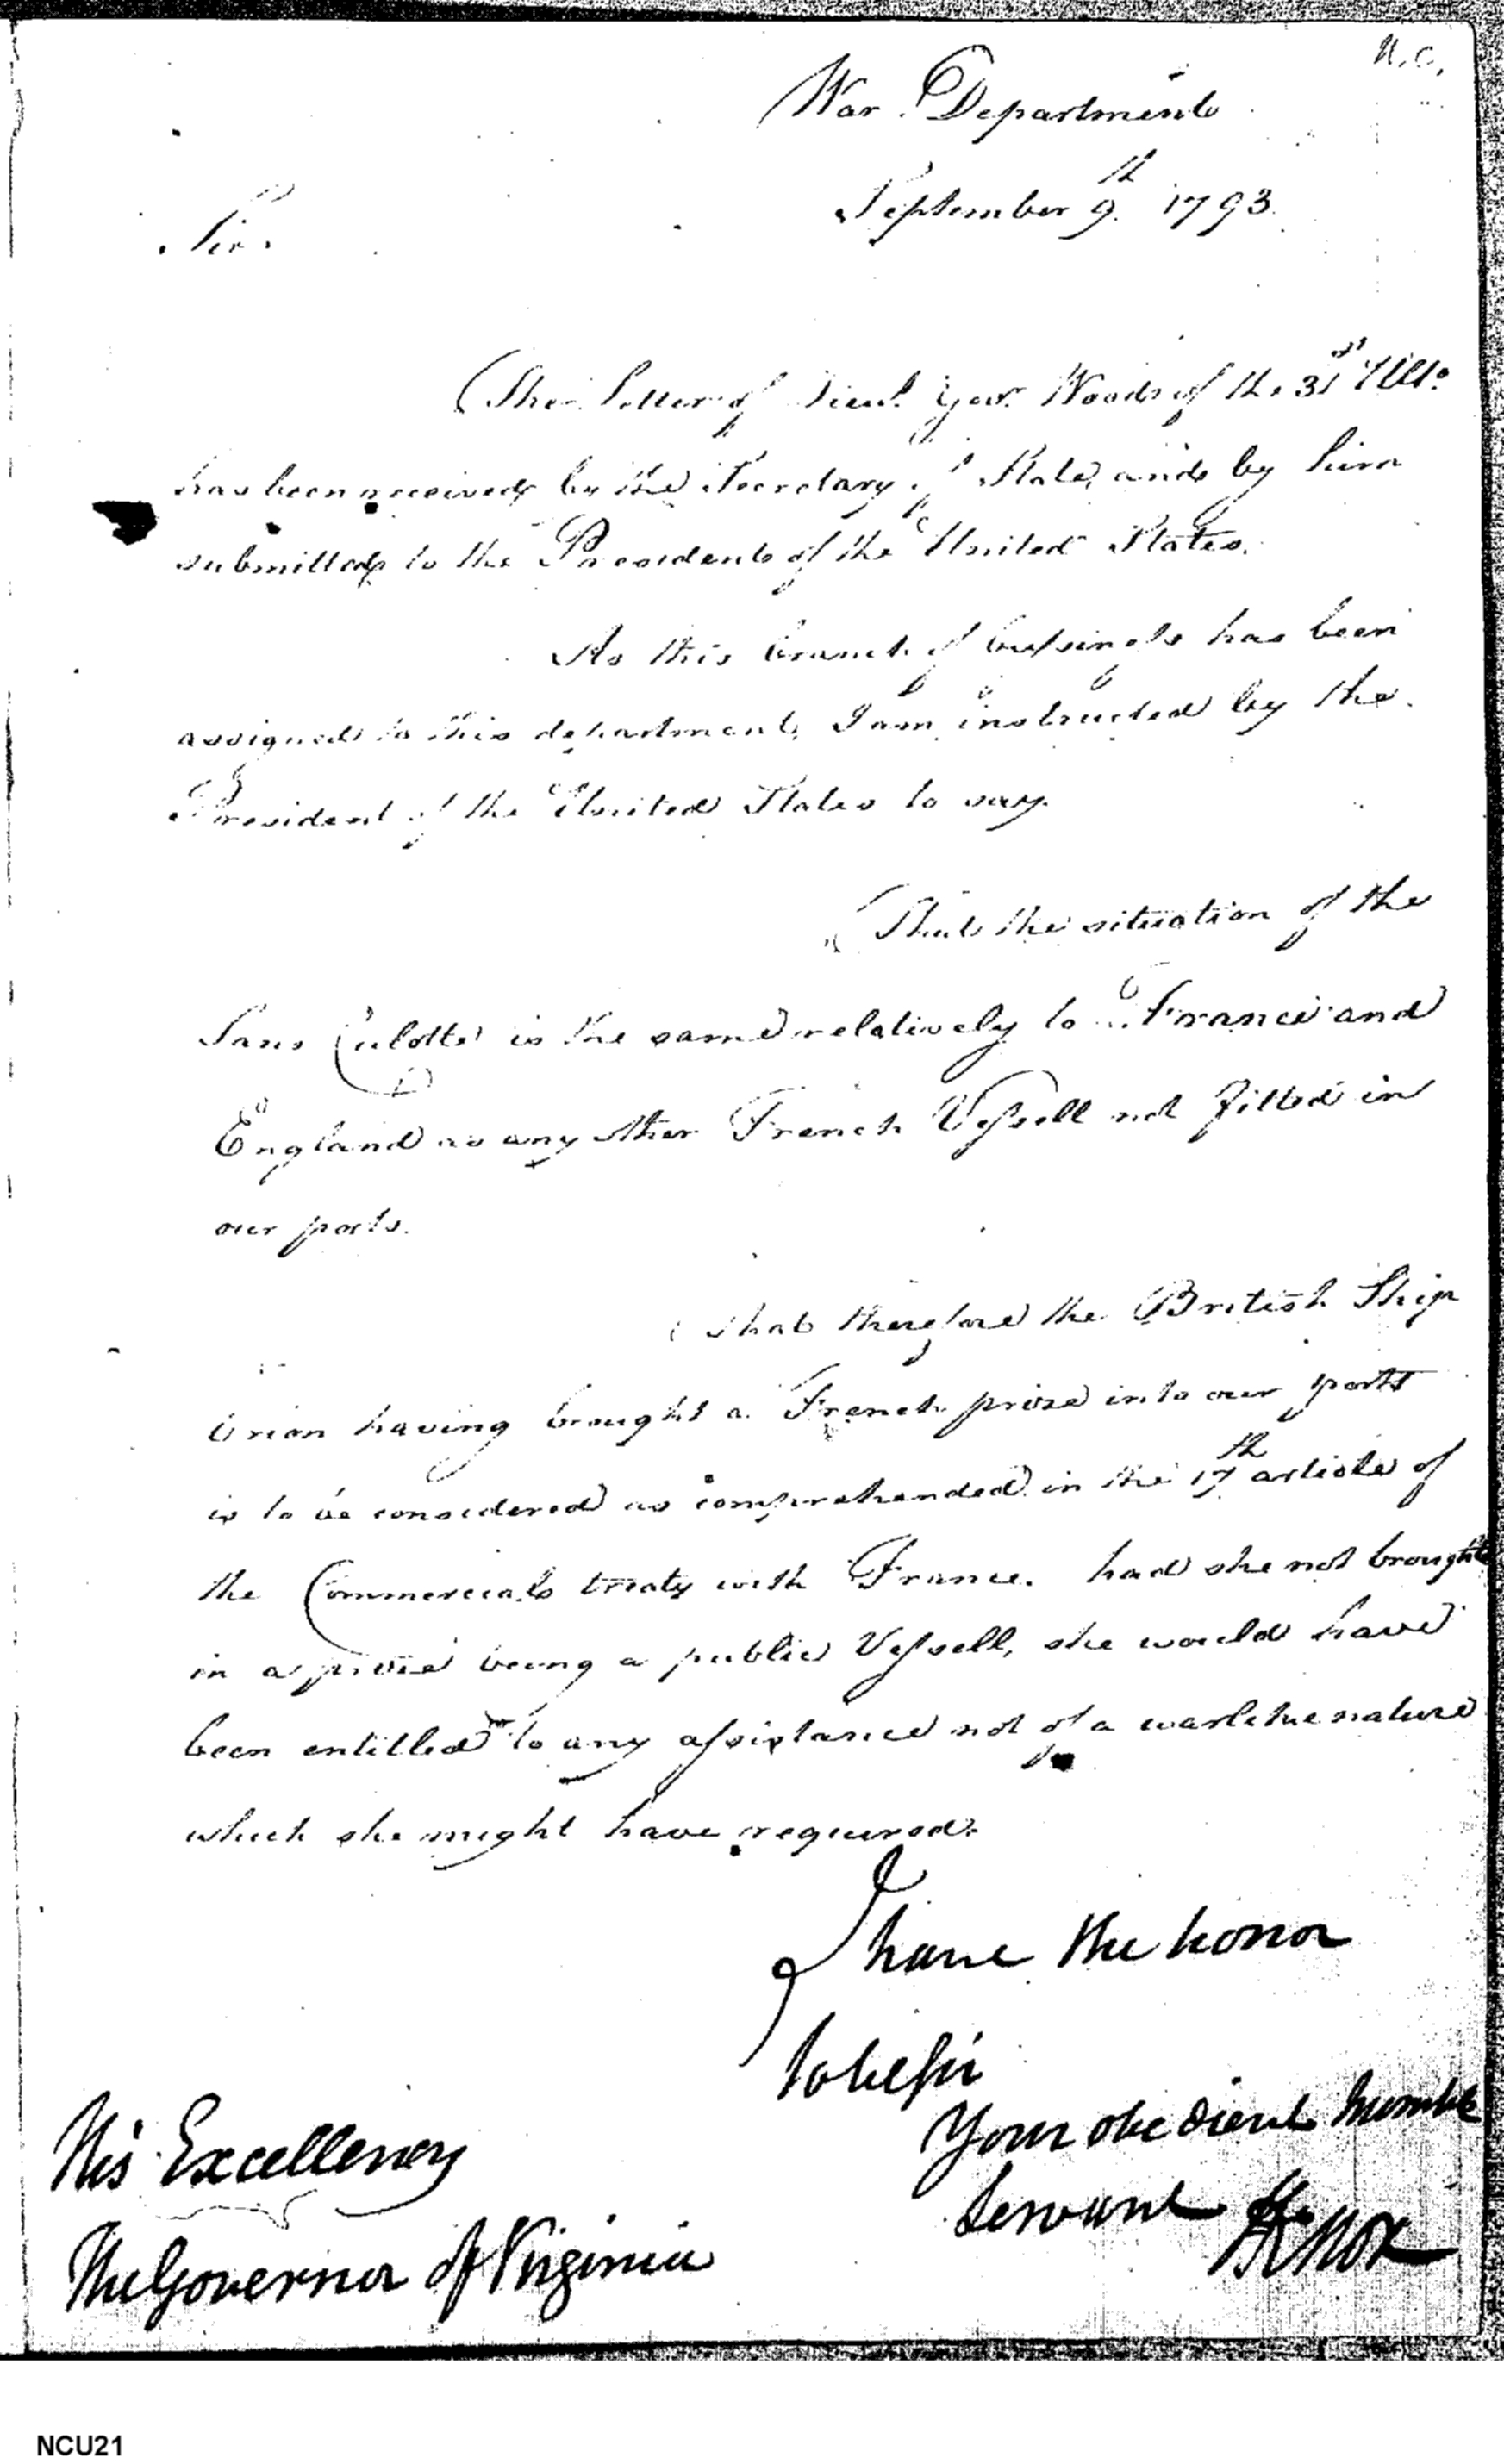 N.C.
War Department
September 9th 1793.
Sir.
The Letter of Lieut. Gov. Woods of the 31st Ulto
has been received by the Secretary of State, and by him
submitted to the President of the United States.
As this branch of bussiness has been
assigned to this department, I am instructed by the
President of the United States to say.
That the situation of the
Sans Culotte is the same relatively to France and
England as any other French Vessell not fitted in
our ports.
That therefore the British Ship
Orion having brought a French prize into our ports
is to be considered as comprehended in the 17th article of
the Commercial treaty with France. had she not brought
in a prize being a public Vessell, she would have
been entitled to any assistance not of a warlike nature
which she might have required.
I have the honor
to be Sir
Your obedient humble
Servant
H Knox
His Excellency
The Governor of Virginia
NCU21